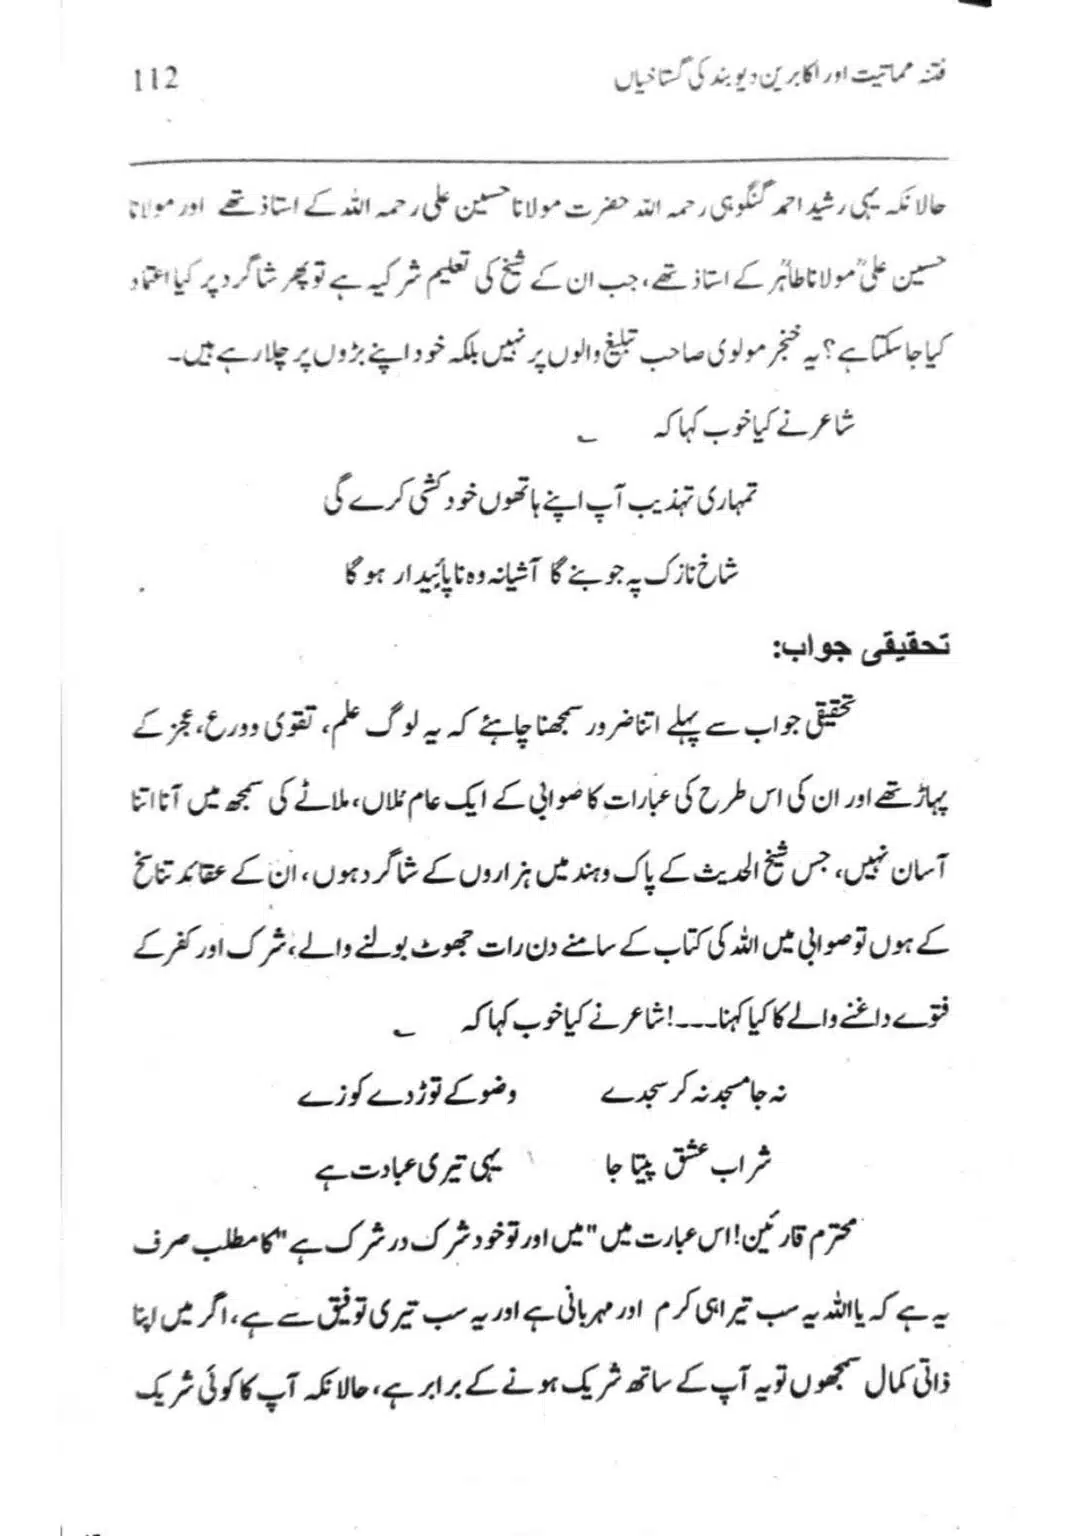 فتنہ مماتیت اور اکابرین دیوبند کی گستاخیاں 112
حالانکہ یہی رشید احمد گنگوہی رحمہ اللہ حضرت مولانا حسین علی رحمہ اللہ کے استاذ تھے اور مولانا
حسین علیؒ مولانا طاہرؒ کے استاذ تھے، جب ان کے شیخ کی تعلیم شرکیہ ہے تو پھر شاگرد پر کیا اعتماد
کیا جا سکتا ہے؟ یہ خنجر مولوی صاحب تبلیغ والوں پر نہیں بلکہ خود اپنے بڑوں پر چلا رہے ہیں۔
شاعر نے کیا خوب کہا کہ ؎
تمہاری تہذیب آپ اپنے ہاتھوں خود کشی کرے گی
شاخ نازک پہ جو بنے گا آشیانہ وہ ناپائیدار ہو گا
تحقیقی جواب:
تحقیقی جواب سے پہلے اتنا ضرور سمجھنا چاہئے کہ یہ لوگ علم، تقوی وورع، عجز کے
پہاڑ تھے اور ان کی اس طرح کی عبارات کا صوابی کے ایک عام مُلاں، ملاٹے کی سمجھ میں آنا اتنا
آسان نہیں، جس شیخ الحدیث کے پاک وہند میں ہزاروں کے شاگرد ہوں، ان کے عقائد تناسخ
کے ہوں تو صوابی میں اللہ کی کتاب کے سامنے دن رات جھوٹ بولنے والے، شرک اور کفر کے
فتوے داغنے والے کا کیا کہنا۔۔۔! شاعر نے کیا خوب کہا کہ ؎
نہ جا مسجد نہ کر سجدے وضو کے توڑ دے کوزے
شراب عشق پیتا جا یہی تیری عبادت ہے
محترم قارئین! اس عبارت میں "میں اور تو خود شرک در شرک ہے" کا مطلب صرف
یہ ہے کہ یا اللہ یہ سب تیرا ہی کرم اور مہربانی ہے اور یہ سب تیری توفیق سے ہے، اگر میں اپنا
ذاتی کمال سمجھوں تو یہ آپ کے ساتھ شریک ہونے کے برابر ہے، حالانکہ آپ کا کوئی شریک